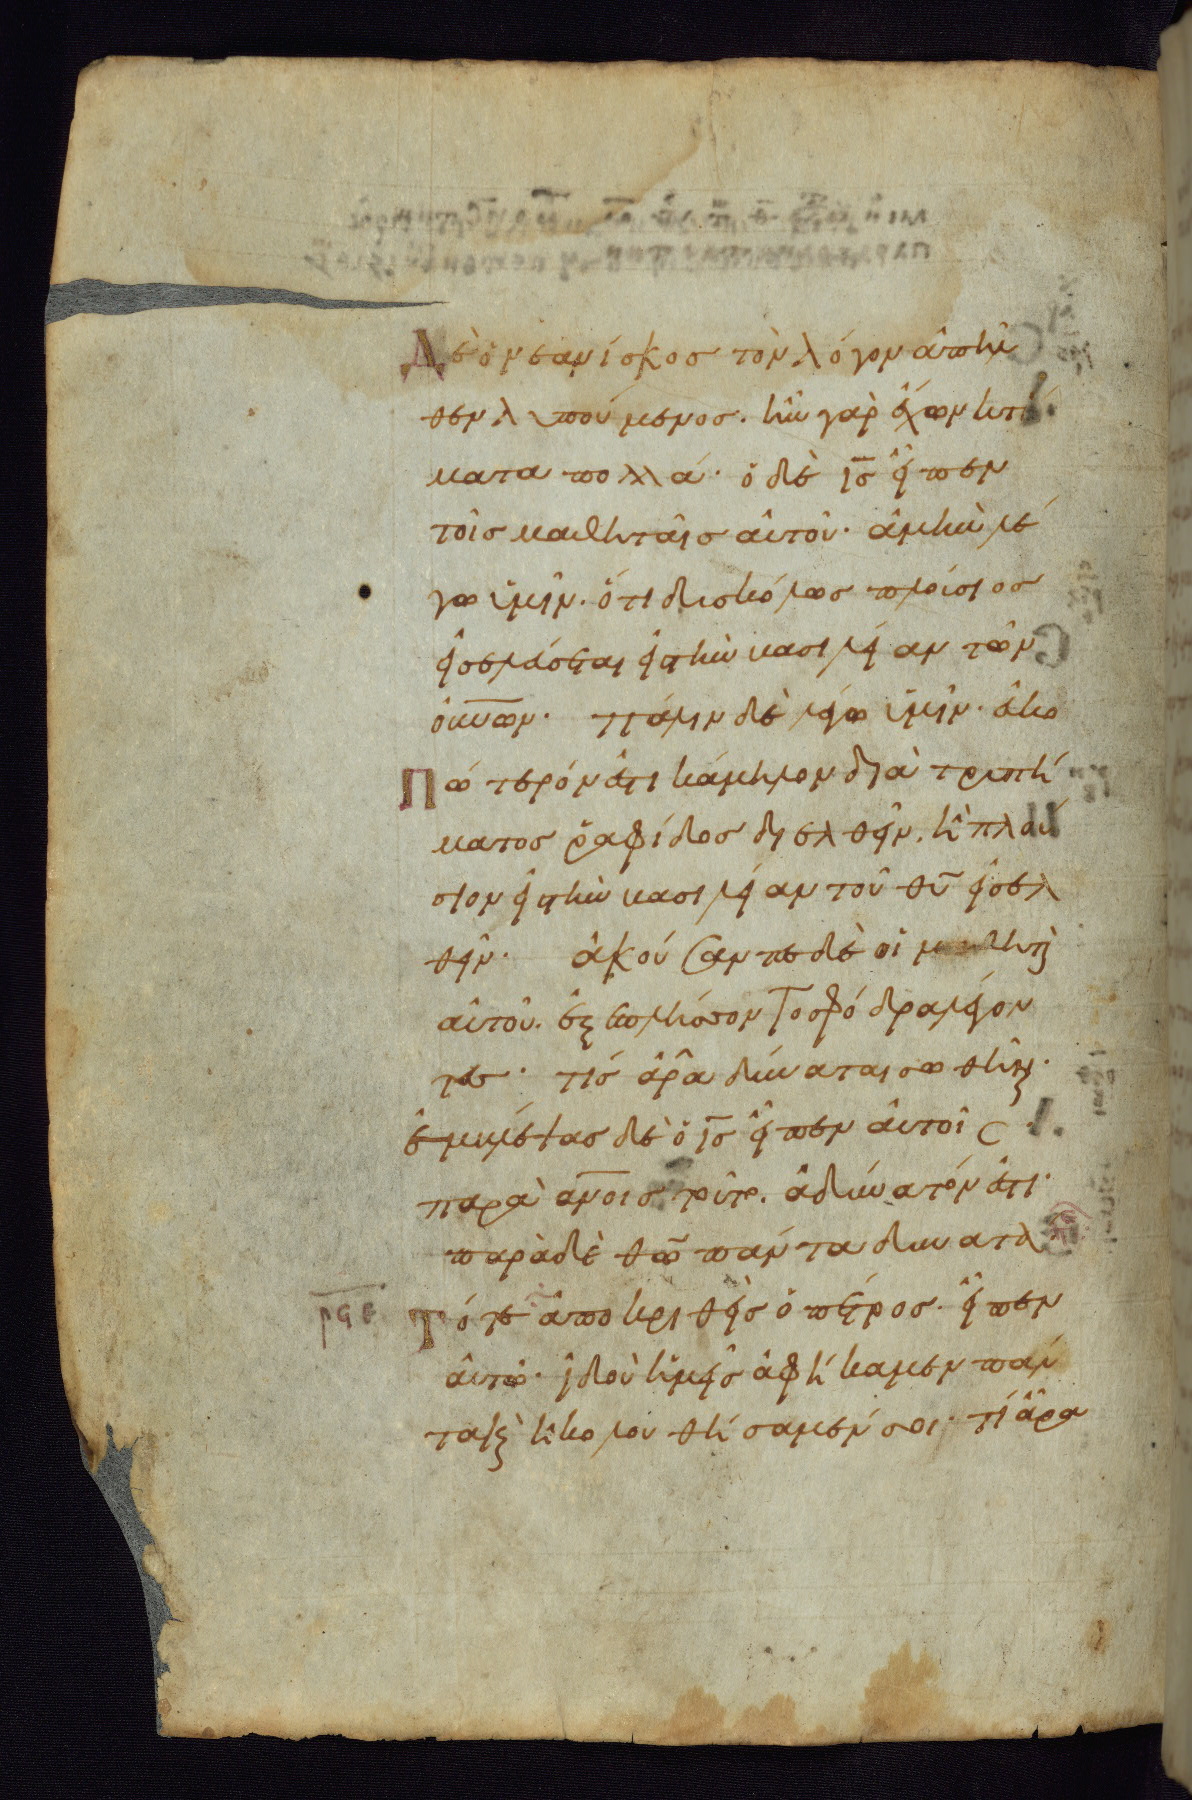 δὲ ὁ νεανίσκος τὸν λόγον ἀπῆλ
θεν λυπούμενος. ἦν γὰρ ἔχων κτή
ματα πολλά· ὁ δὲ ι̅ς̅ εἶπεν
τοῖς μαθηταῖς αὐτοῦ· ἀμὴν λέ
γω ὑμῖν· ὅτι δυσκόλως πλούσιος
εἰσελεύσεται εἰς τὴν βασιλείαν τῶν
ο̅υ̅ν̅ω̅ν̅· πάλιν δὲ λέγω ὑμῖν· εὐκο
πώτερόν ἐστι κάμηλον διὰ τρυπή
ματος ῥαφίδος διελθεῖν, ἢ πλού
σιον εἰς τὴν βασιλείαν τοῦ θ̅υ̅ εἰσελ
θεῖν· ἀκούσαντες δὲ οἱ μαθηταὶ
αὐτοῦ. ἐξεπλήσσοντο σφόδρα λέγον
τες· τίς ἄρα δύναται σωθῆναι·
ἐμβλέψας δὲ ὁ ι̅ς̅ εἶπεν αὐτοῖς
παρὰ α̅ν̅ο̅ι̅ς̅ τοῦτο. ἀδύνατόν ἐστι·
παρὰ δὲ θ̅ω̅ πάντα δυνατὰ
ρ̅ϟ̅ε̅ Τότε ἀποκριθεὶς ὁ πέτρος· εἶπεν
αὐτῷ· ἰδοὺ ἡμεῖς ἀφήκαμεν πάν
τα καὶ ἠκολουθήσαμέν σοι· τί ἄρα